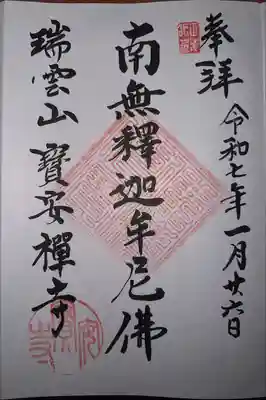 奉拝
令和七年一月廿六日
南無釋迦牟尼佛
瑞雲山寶安禪寺